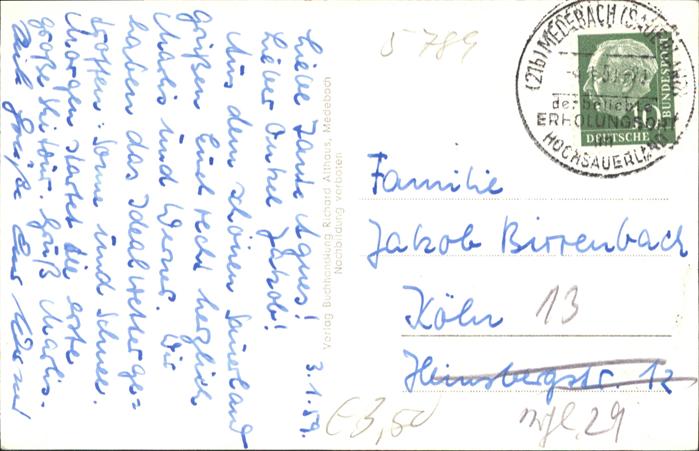 3.1.59.
Liebe Tante Agnes!
Lieber Onkel Jakob!
Aus dem schönen Sauerland
grüßen Euch recht herzlich
Marlis und Werner. Wir
haben das Idealwetter ge-
troffen: Sonne und Schnee.
Morgen startet die erste
große Skitour. Gruß Marlis.
Auch Grüße Euer Werner
Verlag Buchhandlung Richard Althaus, Medebach
Nachbildung verboten
5789
(21b) MEDEBACH (SAUERLAND)
der beliebte
ERHOLUNGSORT
im
HOCHSAUERLAND
10
DEUTSCHE
BUNDESPOST
Familie
Jakob Birrenbach
Köln 13
Heinsbergstr. 12
€ 3,50
29